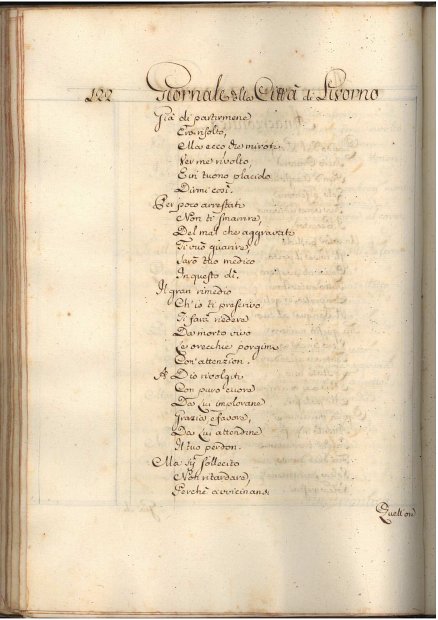 122 Giornale della Città di Livorno
Già di partirmene
Era risolto,
Ma ecco che mirolo
Ver me rivolto,
E in tuono placido
Dirmi così.
Per poco arrestati
Non ti smarrire,
Del mal che aggravati
Ti vuò guarire,
Sarò tuo medico
In questo dì.
Il gran rimedio
Ch'io ti prescrivo
Ti farà riedere
Da morto vivo
Le orecchie porgimi
Con attenzion.
A Dio rivolgiti
Con puro cuore
Da Lui implorane
Grazia e favore,
Da Lui attendine
Il tuo perdon.
Ma sij sollecito
Non ritardare,
Perchè avvicinasi
Quell'ora